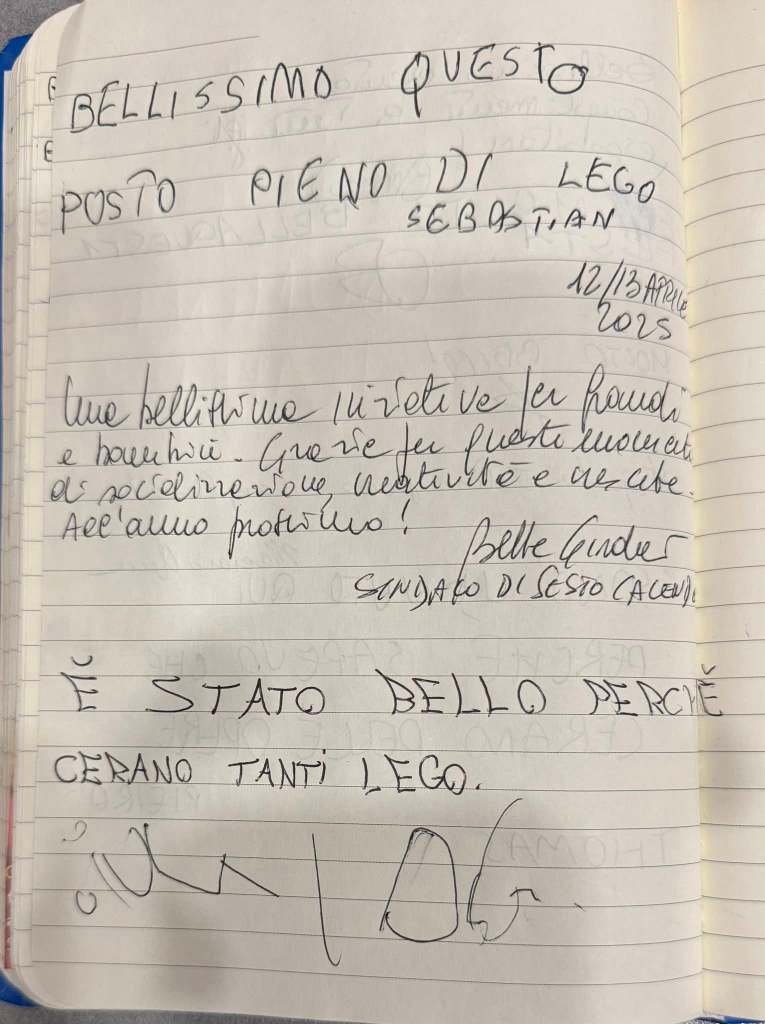 BELLISSIMO QUESTO
POSTO PIENO DI LEGO
SEBASTIAN
12/13 APRILE
2025
Una bellissima iniziativa per grandi
e bambini. Grazie per questi momenti
di socializzazione, creatività e crescita.
All'anno prossimo!
SINDACO DI SESTO CALENDE
È STATO BELLO PERCHÈ
CERANO TANTI LEGO.